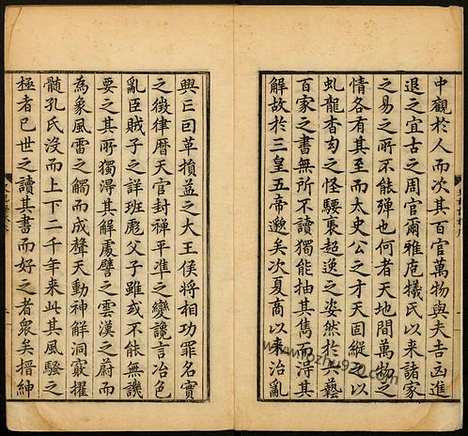 中觀於人而次其百官萬物與夫吉凶進
退之宜古之周官爾雅庖犧氏以來諸家
之易之所不能殫也何者天地間萬物之
情各有其至而太史公之才天固縱之以
虬龍杳肉之怪騕褭超逸之姿然於六藝
百家之書無所不讀獨能抽其雋而得其
解故於三皇五帝邈矣次夏商以來治亂
興亡因革損益之大王侯將相功罪名實
之徵律厤天官封禪平準之變讒言冶色
亂臣賊子之詳班彪父子雖或不能無譏
要之其所獨得其解處譬之雲漢之蔚而
為象風雷之觸而成聲天動神解洞竅擢
髓孔氏沒而上下二千年來此其風騷之
極者已世之讀其書而好之者衆矣搢紳